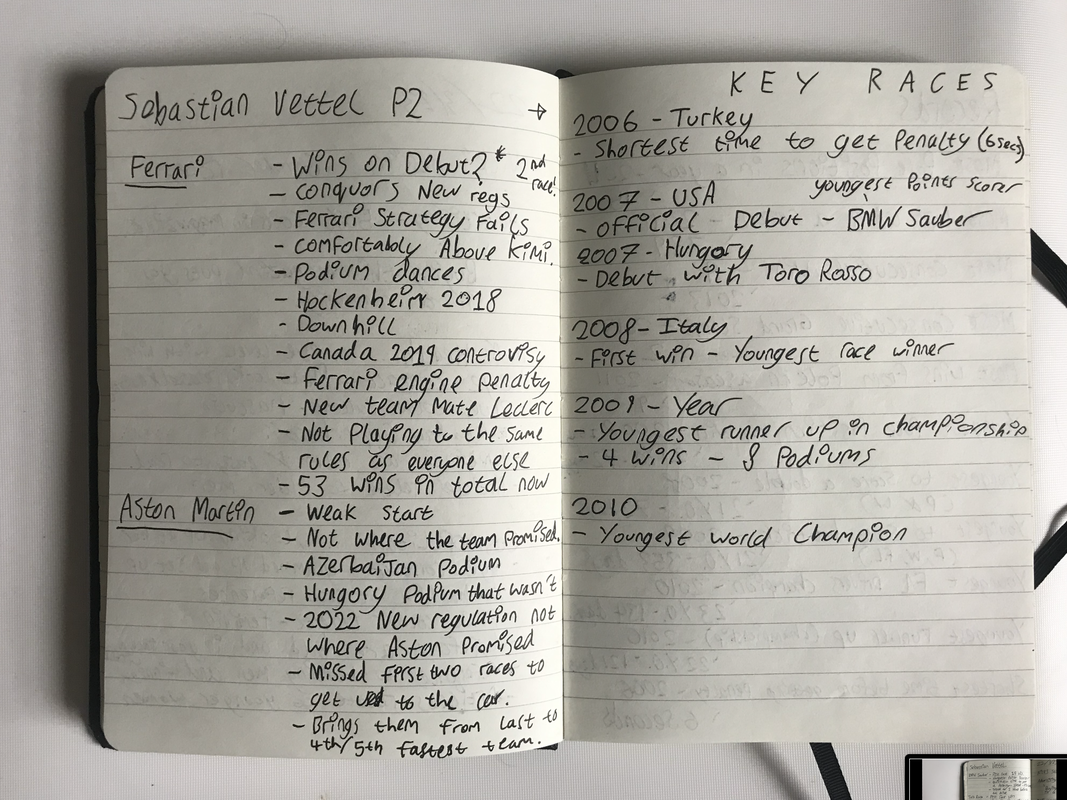 Sebastian Vettel P2 →
Ferrari - Wins on Debut? * 2nd race!
- conquors New regs
- Ferrari Strategy Fails
- comfortably Above Kimi.
- Podium dances
- Hockenheim 2018
- Downhill
- Canada 2019 controvisy
- Ferrari engine penalty
- New team Mate Leclerc
- Not Playing to the same
rules as everyone else
- 53 wins in total now
Aston Martin - Weak start
- Not where the team Promised.
- Azerbaijan Podium
- Hungory Podium that wasn't
- 2022 New regulation not
where Aston Promised
- Missed first two races to
get used to the car.
- Brings them from last to
4th/5th fastest team.
KEY RACES
2006 - Turkey
- Shortest time to get Penalty (6sec)
2007 - USA youngest Points Scorer
- Official Debut - BMW Sauber
2007 - Hungory
- Debut with Toro Rosso
2008 - Italy
- First win - Youngest race winner
2009 - Year
- Youngest runner up in championship
- 4 wins - 8 Podiums
2010
- Youngest world Champion